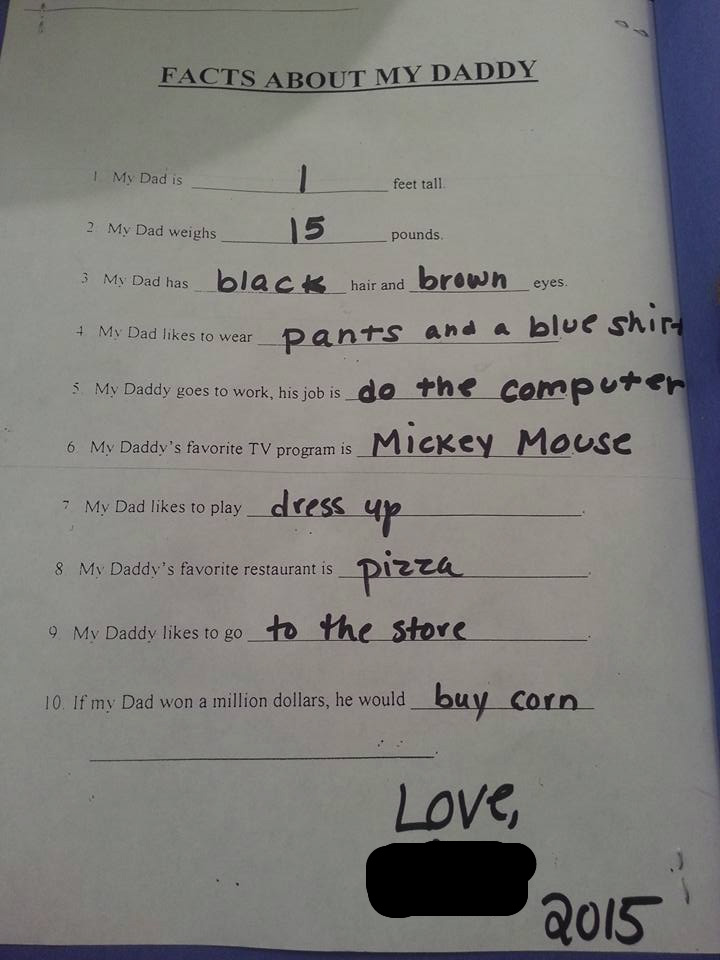 FACTS ABOUT MY DADDY
1. My Dad is 1 feet tall.
2. My Dad weighs 15 pounds.
3. My Dad has black hair and brown eyes.
4. My Dad likes to wear pants and a blue shirt
5. My Daddy goes to work, his job is do the computer
6. My Daddy's favorite TV program is Mickey Mouse
7. My Dad likes to play dress up.
8. My Daddy's favorite restaurant is pizza.
9. My Daddy likes to go to the store.
10. If my Dad won a million dollars, he would buy corn
Love,
2015